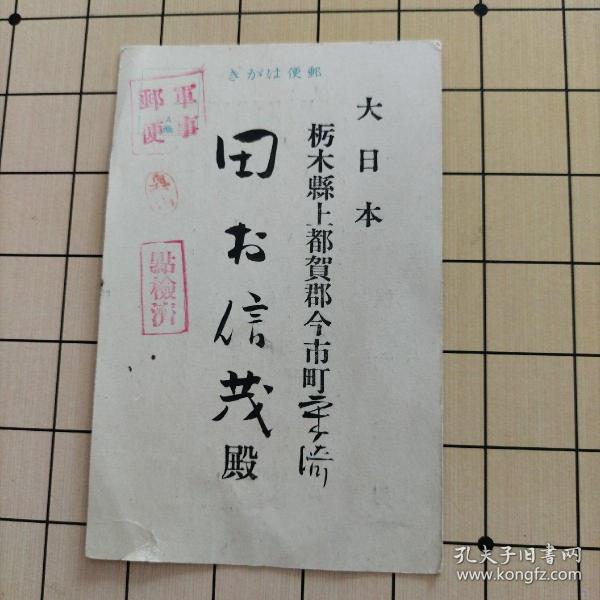 郵便はがき
大日本
栃木縣上都賀郡今市町
田村信茂殿
軍事
郵便
點檢濟
孔夫子旧书网
www.kongfz.com